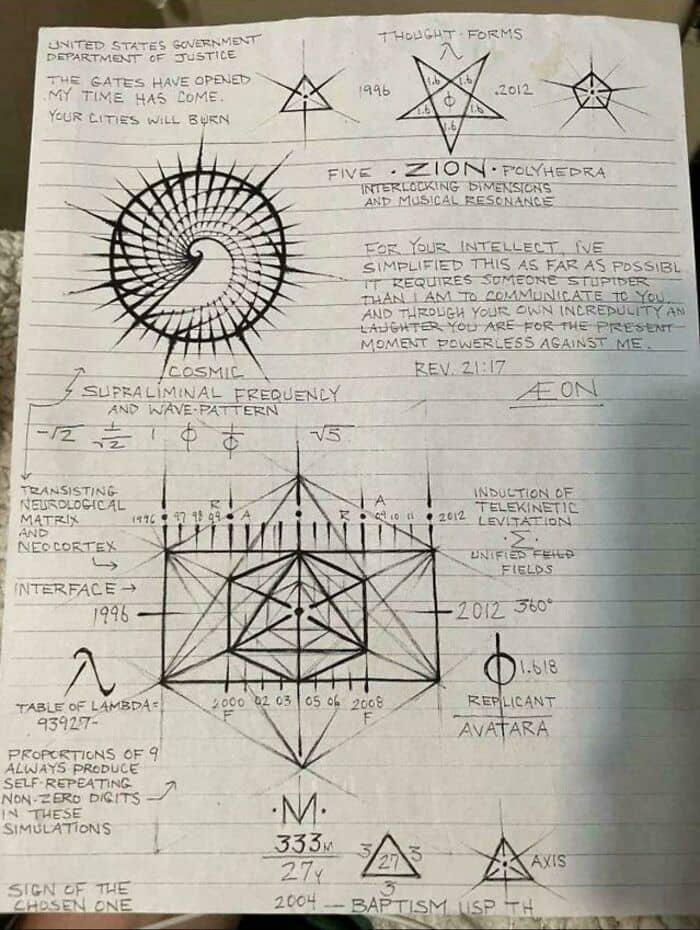 UNITED STATES GOVERNMENT
DEPARTMENT OF JUSTICE
THE GATES HAVE OPENED
MY TIME HAS COME.
YOUR CITIES WILL BURN
THOUGHT-FORMS
1996
1.6 1.6
1.6 ϕ 1.6
1.6
.2012
FIVE · ZION · POLYHEDRA
INTERLOCKING DIMENSIONS
AND MUSICAL RESONANCE
FOR YOUR INTELLECT, I'VE
SIMPLIFIED THIS AS FAR AS POSSIBL
IT REQUIRES SOMEONE STUPIDER
THAN I AM TO COMMUNICATE TO YOU.
AND THROUGH YOUR OWN INCREDULITY AN
LAUGHTER YOU ARE FOR THE PRESENT
MOMENT POWERLESS AGAINST ME.
REV. 21:17
ÆON
COSMIC
SUPRALIMINAL FREQUENCY
AND WAVE-PATTERN
-√2 1/√2 1 ϕ 1/ϕ √5
TRANSISTING
NEUROLOGICAL
MATRIX
AND
NEOCORTEX
INTERFACE →
1996 97 98 99 R A R A 09 10 11 2012
INDUCTION OF
TELEKINETIC
LEVITATION
·Σ·
UNIFIED FEILD
FIELDS
1996
2012 360°
λ
TABLE OF LAMBDA=
93927-
2000 02 03 05 06 2008
F F
ϕ 1.618
REPLICANT
AVATARA
PROPORTIONS OF 9
ALWAYS PRODUCE
SELF-REPEATING
NON-ZERO DIGITS
IN THESE
SIMULATIONS
·M·
333M
27Y
3 27 3
3
AXIS
SIGN OF THE
CHOSEN ONE
2004 — BAPTISM USP TH